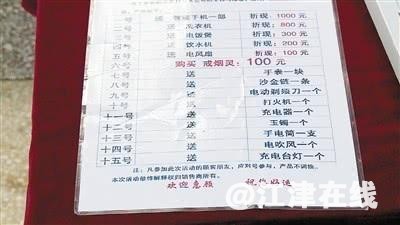 一号 送 手机一部 折现:1000元
二号 送 洗衣机 折现:800元
三号 送 电饭煲 折现:300元
四号 送 饮水机 折现:200元
五号 送 电风扇 折现:100元
购买 戒烟灵:100元
六号 送 手表一块
七号 送 沙金链一条
八号 送 电动剃须刀一个
九号 送 打火机一个
十号 送 充电器一个
十一号 送 玉镯一个
十二号 送 手电筒一支
十三号 送 电吹风一个
十四号 送 充电台灯一个
十五号
注:凡参加此次活动的顾客朋友,应对号参与,产品不调换。
本次活动最终解释权归销售商所有。
欢迎惠顾 祝你好运
@江津在线